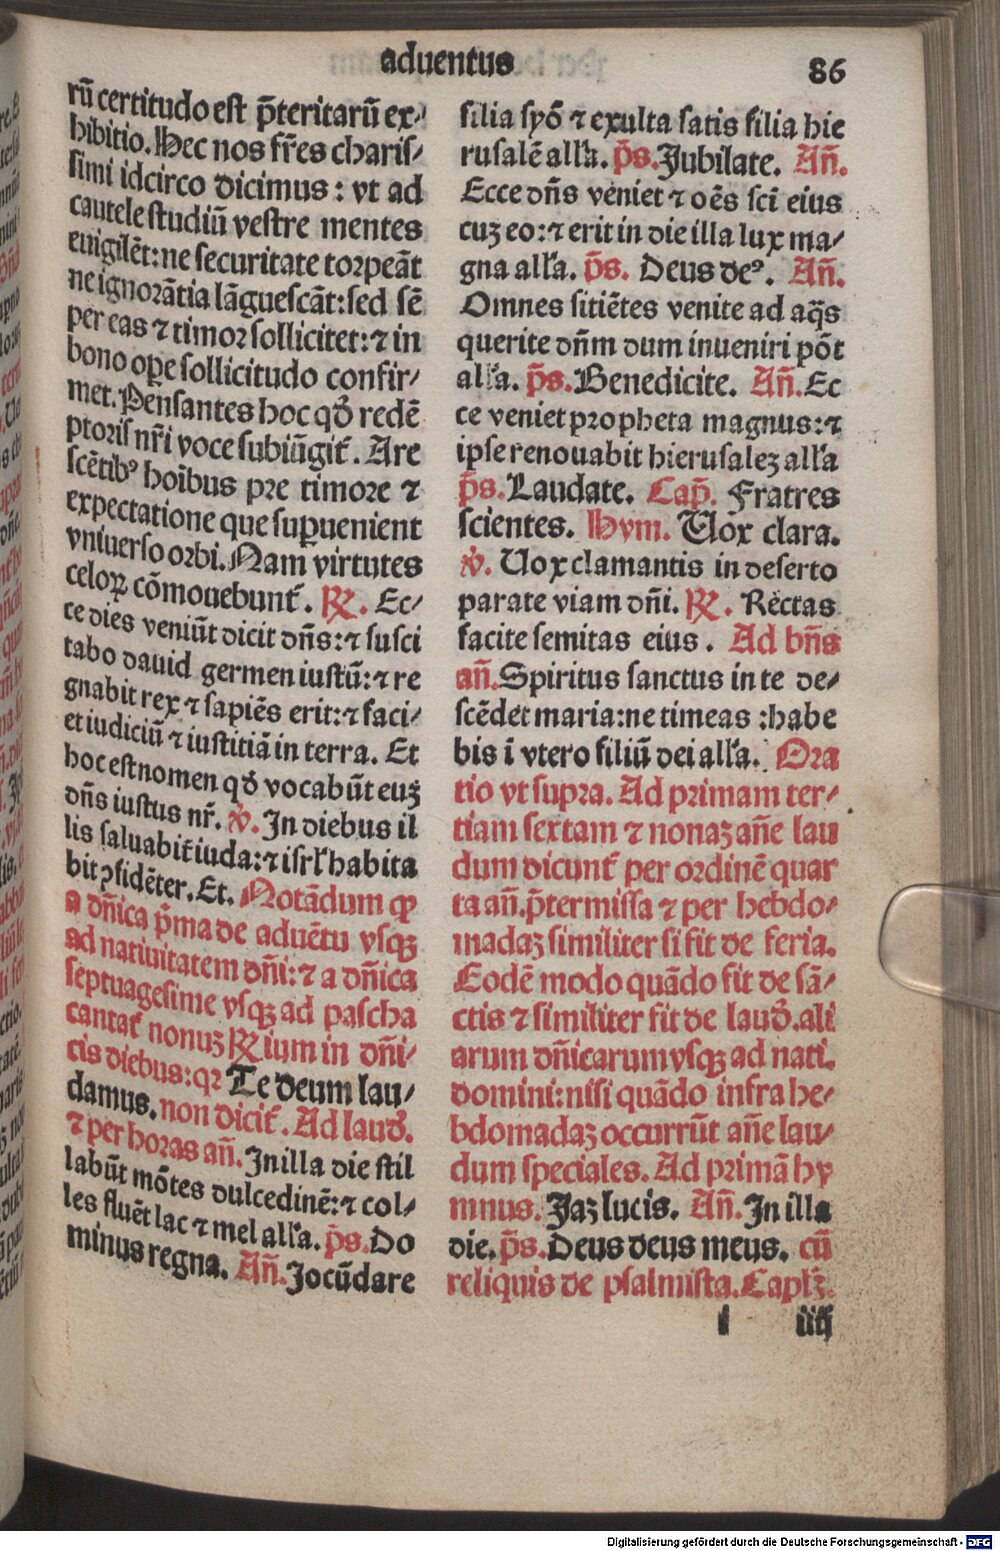 aduentus
86
rū certitudo est p̄teritarū ex⸗
hibitio. Hec nos fr̄es charis⸗
simi idcirco dicimus: vt ad
cautele studiū vestre mentes
euigilēt: ne securitate torpeāt
ne ignorātia lāguescāt: sed sē
per eas ⁊ timor sollicitet: ⁊ in
bono oꝑe sollicitudo confir⸗
met. Pensantes hoc qđ redē
ptoris nr̄i voce subiūgit̄. Are
scētibꝰ hoībus pre timore ⁊
expectatione que suꝑuenient
vniuerso orbi. Nam virtutes
celoꝝ cōmouebunt̄. ℟. Ec⸗
ce dies veniūt dicit dn̄s: ⁊ susci
tabo dauid germen iustū: ⁊ re
gnabit rex ⁊ sapiēs erit: ⁊ faci⸗
et iudiciū ⁊ iustitiā in terra. Et
hoc est nomen qđ vocabūt euʒ
dn̄s iustus nr̄. ℣. In diebus il
lis saluabit̄ iuda: ⁊ isrl̄ habita
bit ꝯfidēter. Et. Notādum ꝙ
a dn̄ica p̄ma de aduētu vsqꝫ
ad natiuitatem dn̄i: ⁊ a dn̄ica
septuagesime vsqꝫ ad pascha
cantat̄ nonuʒ ℟ium in dn̄i⸗
cis diebus: qꝛ Te deum lau⸗
damus. non dicit̄. Ad laud̄.
⁊ per horas an̄. In illa die stil
labūt mōtes dulcedinē: ⁊ col⸗
les fluēt lac ⁊ mel all'a. p̄s. Do
minus regna. An̄. Jocūdare
filia syō ⁊ exulta satis filia hie
rusalē all'a. p̄s. Jubilate. An̄.
Ecce dn̄s veniet ⁊ oēs sc̄i eius
cuʒ eo: ⁊ erit in die illa lux ma⸗
gna all'a. p̄s. Deus deꝰ. An̄.
Omnes sitiētes venite ad aq̄s
querite dn̄m dum inueniri pōt
all'a. p̄s. Benedicite. An̄. Ec
ce veniet propheta magnus: ⁊
ipse renouabit hierusaleʒ all'a
p̄s. Laudate. Cap̄. Fratres
scientes. Hym. Vox clara.
℣. Vox clamantis in deserto
parate viam dn̄i. ℟. Rectas
facite semitas eius. Ad bn̄s
an̄. Spiritus sanctus in te de⸗
scēdet maria: ne timeas: habe
bis ī vtero filiū dei all'a. Ora
tio vt supra. Ad primam ter⸗
tiam sextam ⁊ nonaʒ an̄e lau
dum dicunt̄ per ordinē quar
ta an̄. p̄termissa ⁊ per hebdo⸗
madaʒ similiter si fit de feria.
Eodē modo quādo fit de sā⸗
ctis ⁊ similiter fit de laud̄. ali
arum dn̄icarum vsqꝫ ad nati.
domini: nisi quādo infra he⸗
bdomadaʒ occurrūt an̄e lau⸗
dum speciales. Ad primā hy
mnus. Jaʒ lucis. An̄. In illa
die. p̄s. Deus deus meus. cū
reliquis de psalmista. Capl'ʒ.
l iij
Digitalisierung gefördert durch die Deutsche Forschungsgemeinschaft - DFG